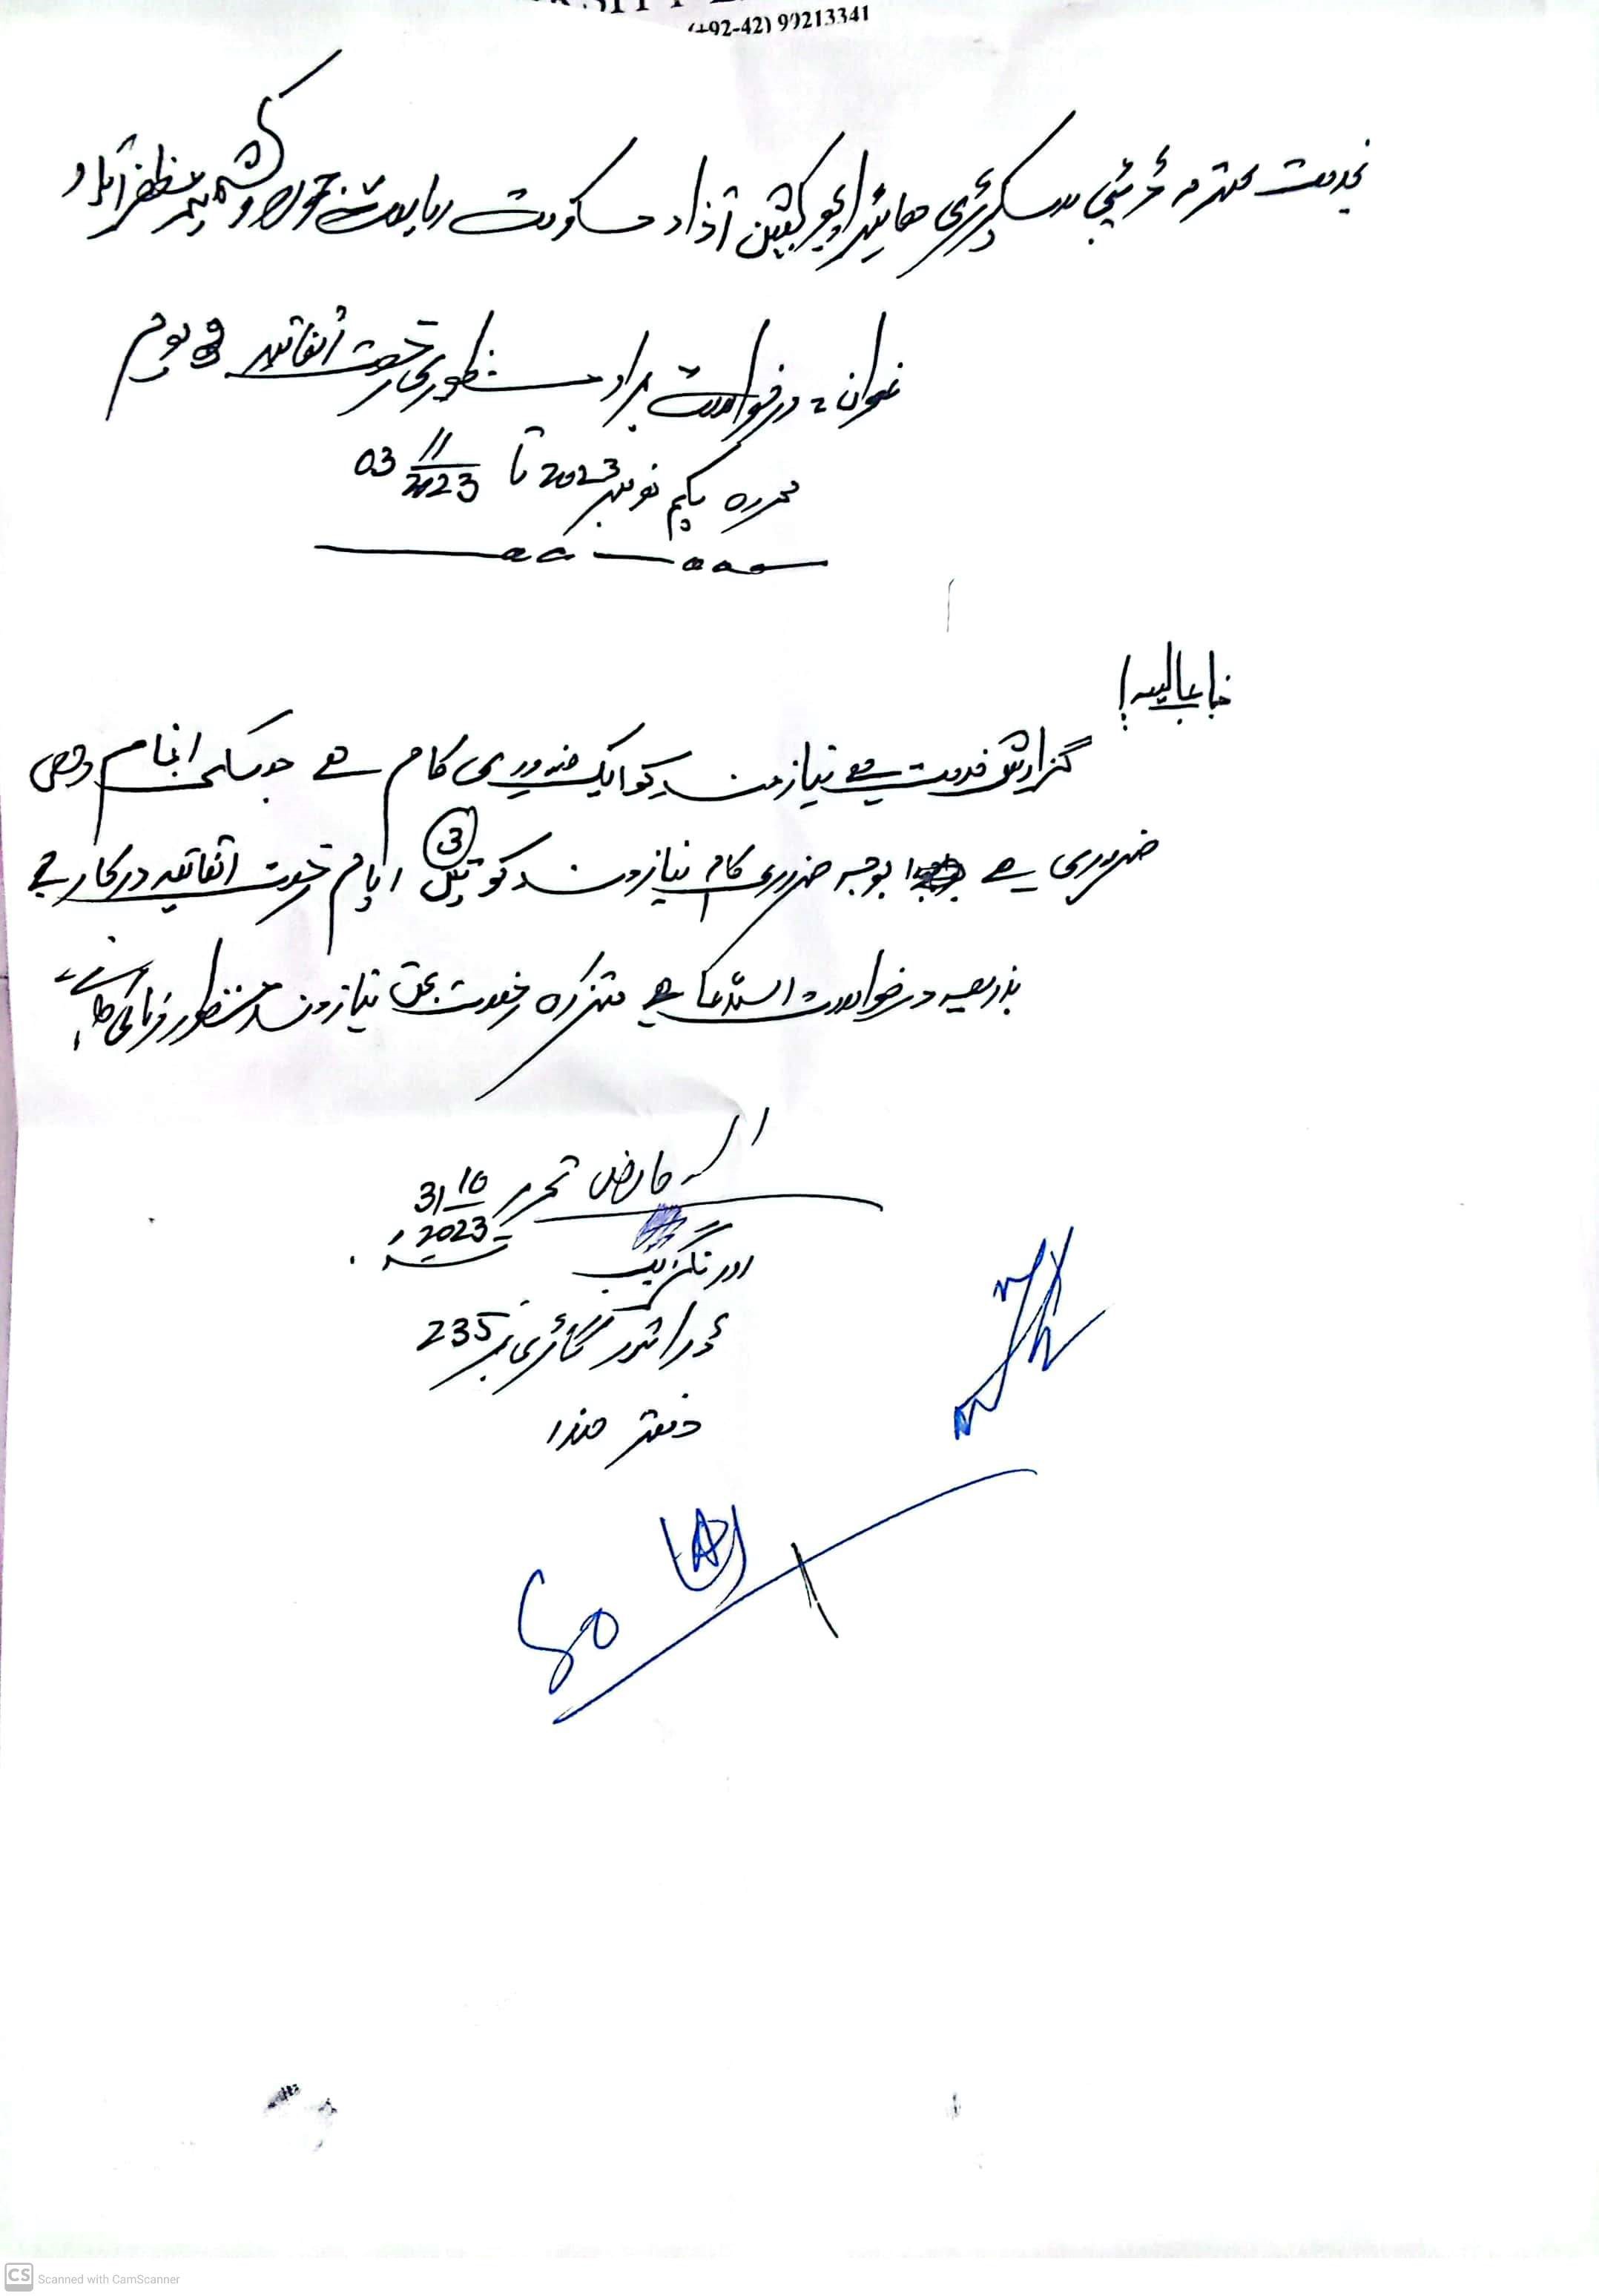 (+92-42) 99213341
بخدمت محترمہ ڈپٹی سیکرٹری ھائیر ایجوکیشن آزاد حکومت ریاست جموں و کشمیر مظفرآباد
عنوان = درخواست براد منظوری رخصت اتفاقیہ یوم
محررہ یکم نومبر 2023 تا 03 11/2023
جناب عالیہ!
گزارش خدمت ہے نیازمند کو ایک ضروری کام ہے جسکی انجام دھی
ضروری ہے بوجہ ضروری کام نیازمند کو تین 3 ایام رخصت اتفاقیہ درکار ہے
بذریعہ درخواست استدعا ہے متذکرہ رخصت بحق نیازمند منظور فرمائی جائے
العارض تحریر 31 10/2023
اورنگزیب
ڈرائیور گاڑی نمبر 235
دفتر ھذا
SO (A)
CS Scanned with CamScanner